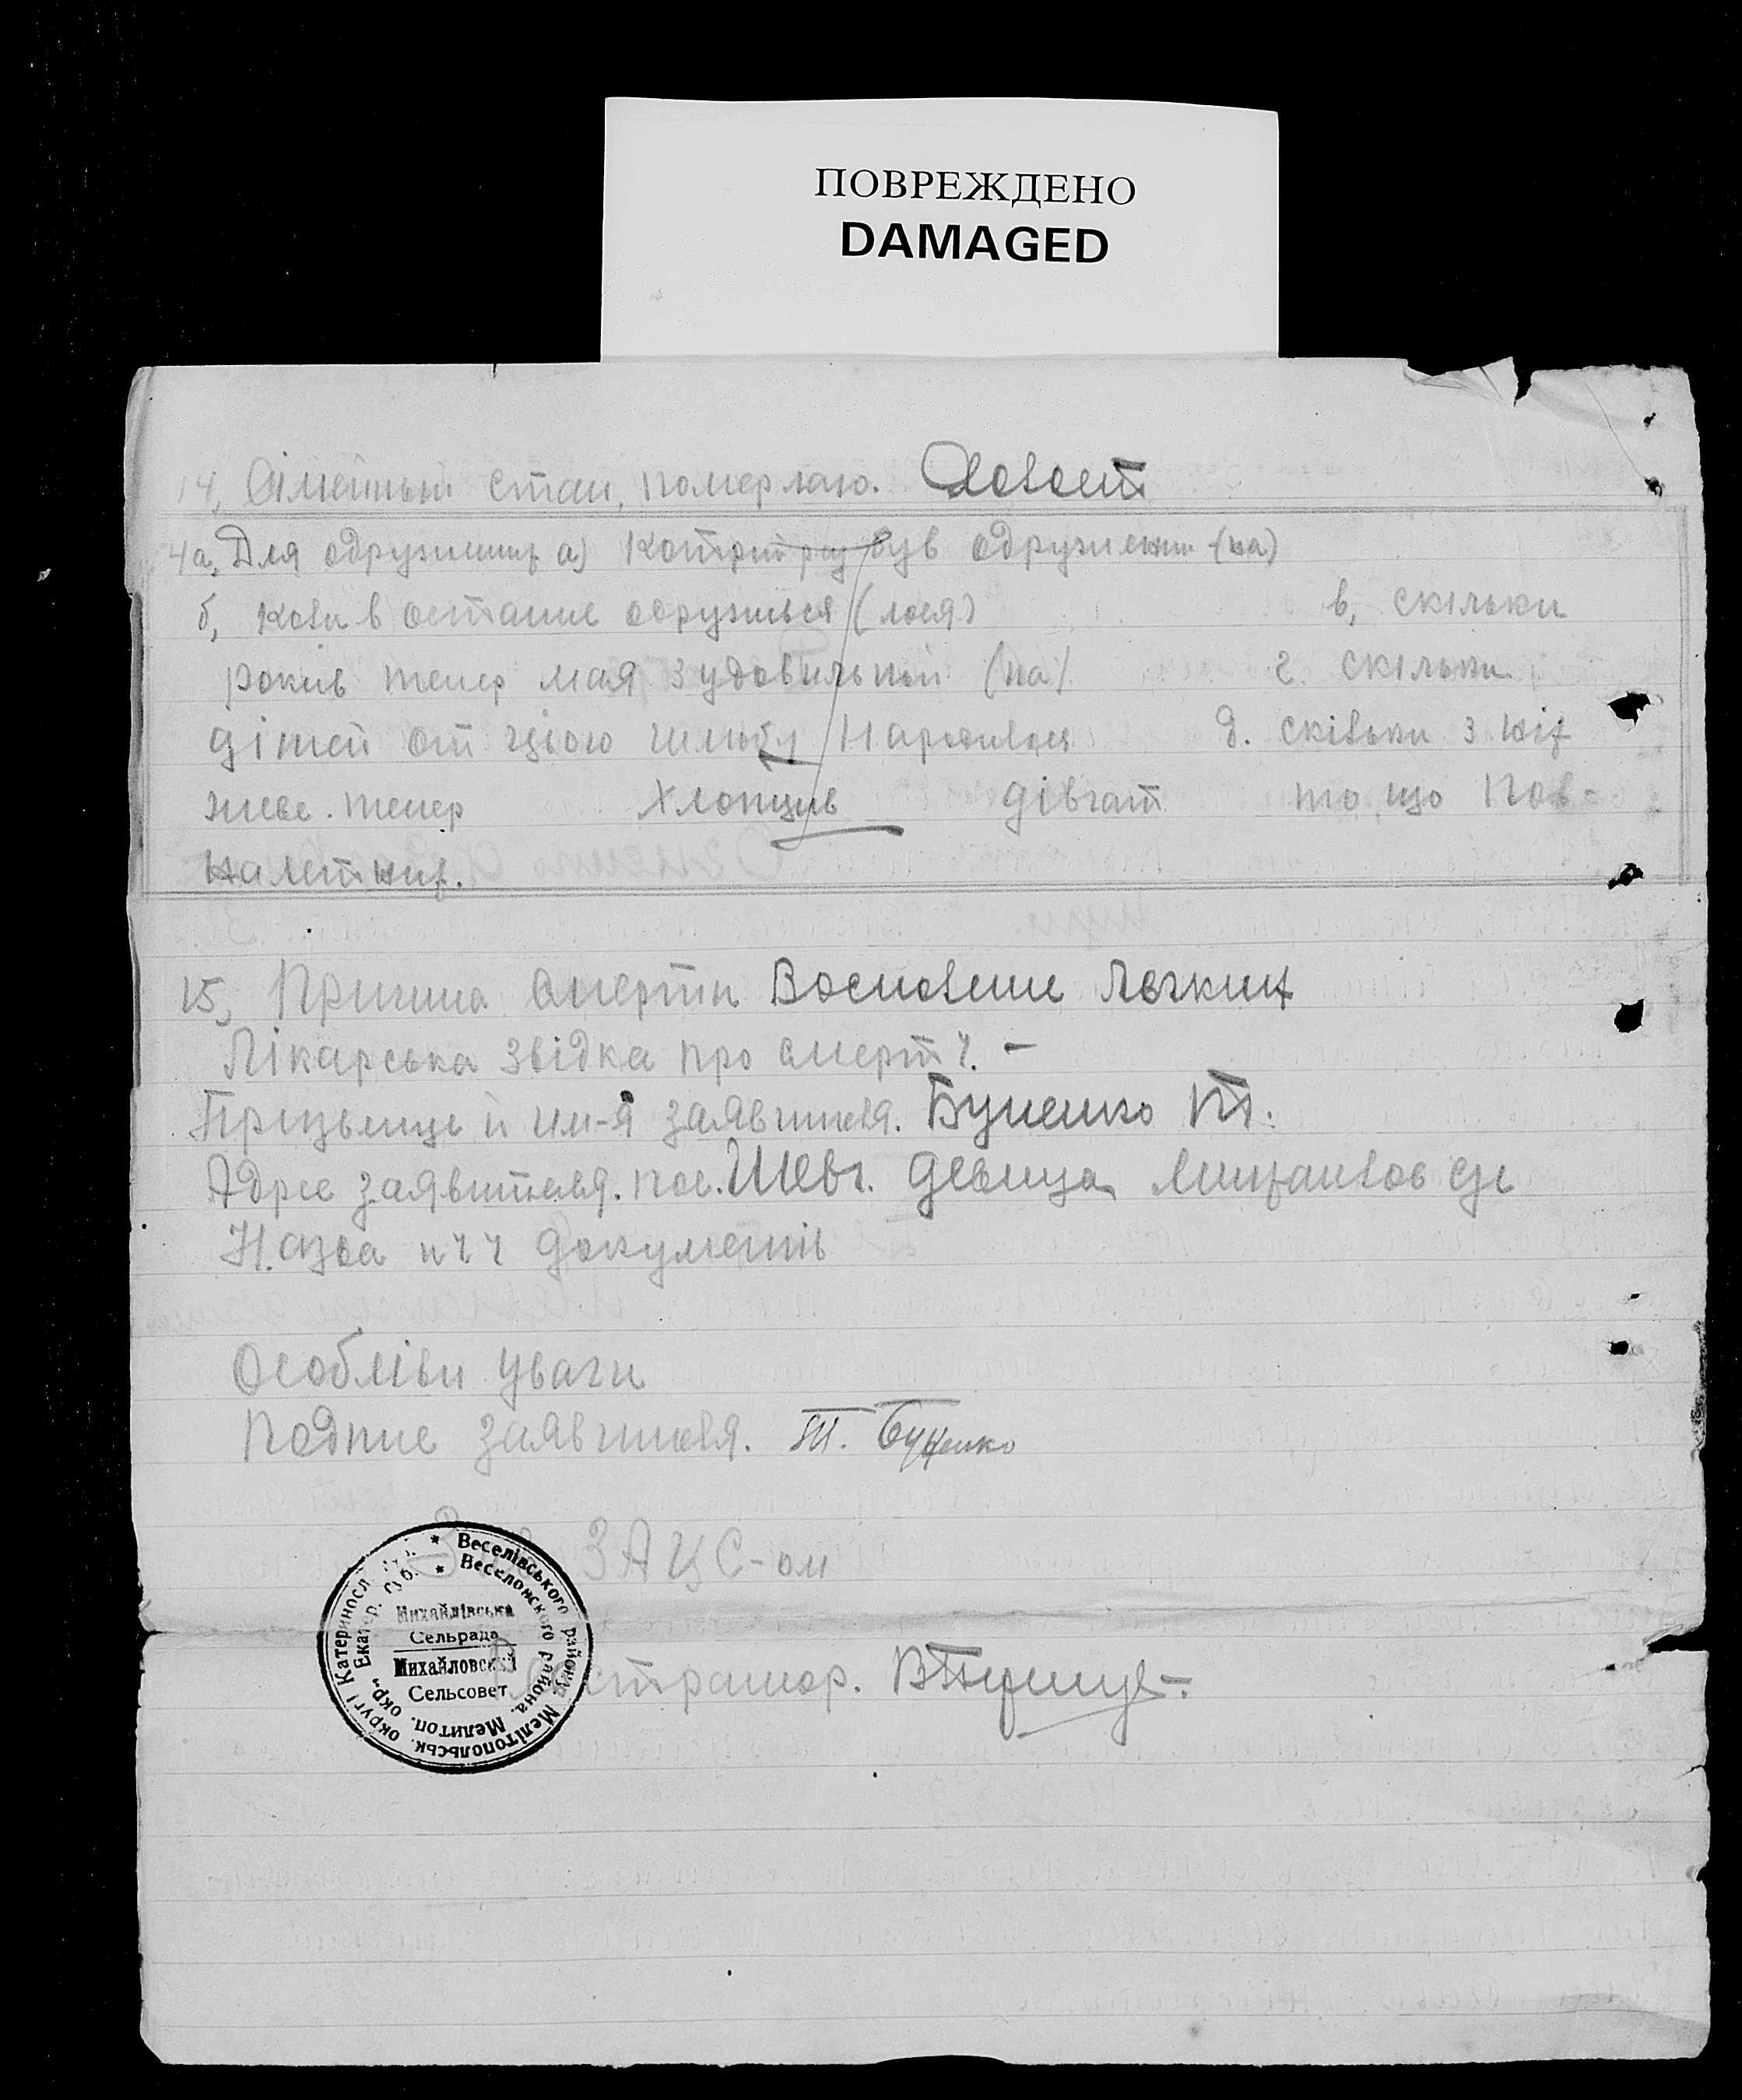 ПОВРЕЖДЕНО
DAMAGED
14, Сімейный стан, померлаго. Холост
4а, Для одружиних а) Котрий раз був одружений (на)
б, Коли в останне одружився (лося) в, скільки
років тепер мая з удовильный (на) г. скільки
дітей от цього шлюбу Народилося д. скільки з них
живе. тепер Хлопцив дівчат то що Пов-
налетних.
15, Причина смерти Восполение Легких
Лікарська звідка про смерть. –
Призьвище й им-я заявителя. Буценко П.
Адрес заявителя. пос. Шевч.
Назва документів
Особліви Уваги
Подпис заявителя. Буценко
Зав ЗАЦС-ом
Регистратор.
Веселівського району Мелітопольськ. округ Катериносл. губ.
Веселовского района, Мелитоп. окр, Екатер. губ.
Михайлівська
Сельрада
Михайловский
Сельсовет